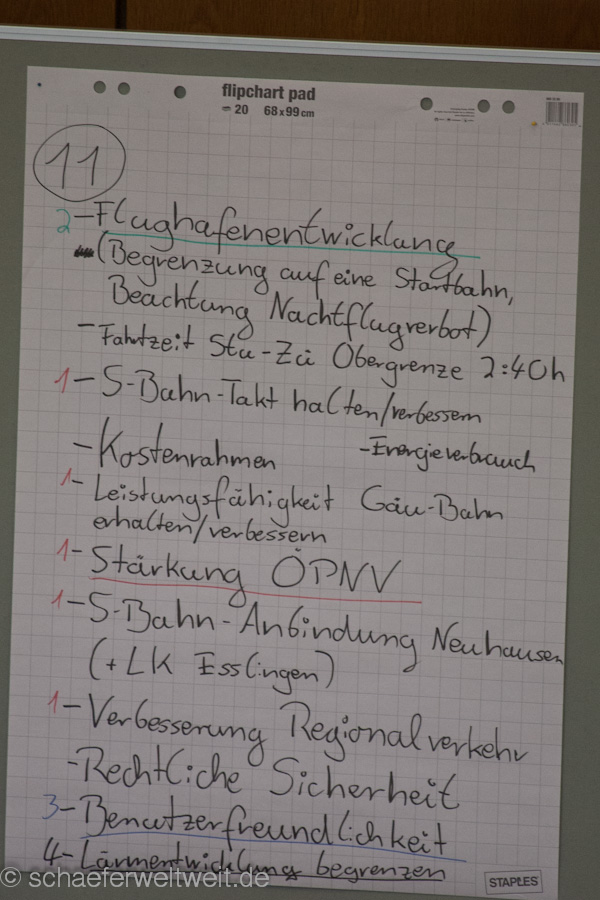 flipchart pad
20 68 x 99 cm
11
2 - Flughafenentwicklung
(Begrenzung auf eine Startbahn,
Beachtung Nachtflugverbot)
- Fahrtzeit Stu-Zü Obergrenze 2:40h
1 - S-Bahn-Takt halten/verbessern
- Kostenrahmen - Energieverbrauch
1 - Leistungsfähigkeit Gäu-Bahn
erhalten/verbessern
1 - Stärkung ÖPNV
1 - S-Bahn-Anbindung Neuhausen
(+ LK Esslingen)
1 - Verbesserung Regionalverkehr
- Rechtliche Sicherheit
3 - Benutzerfreundlichkeit
4 - Lärmentwicklung begrenzen
© schaeferweltweit.de
STAPLES